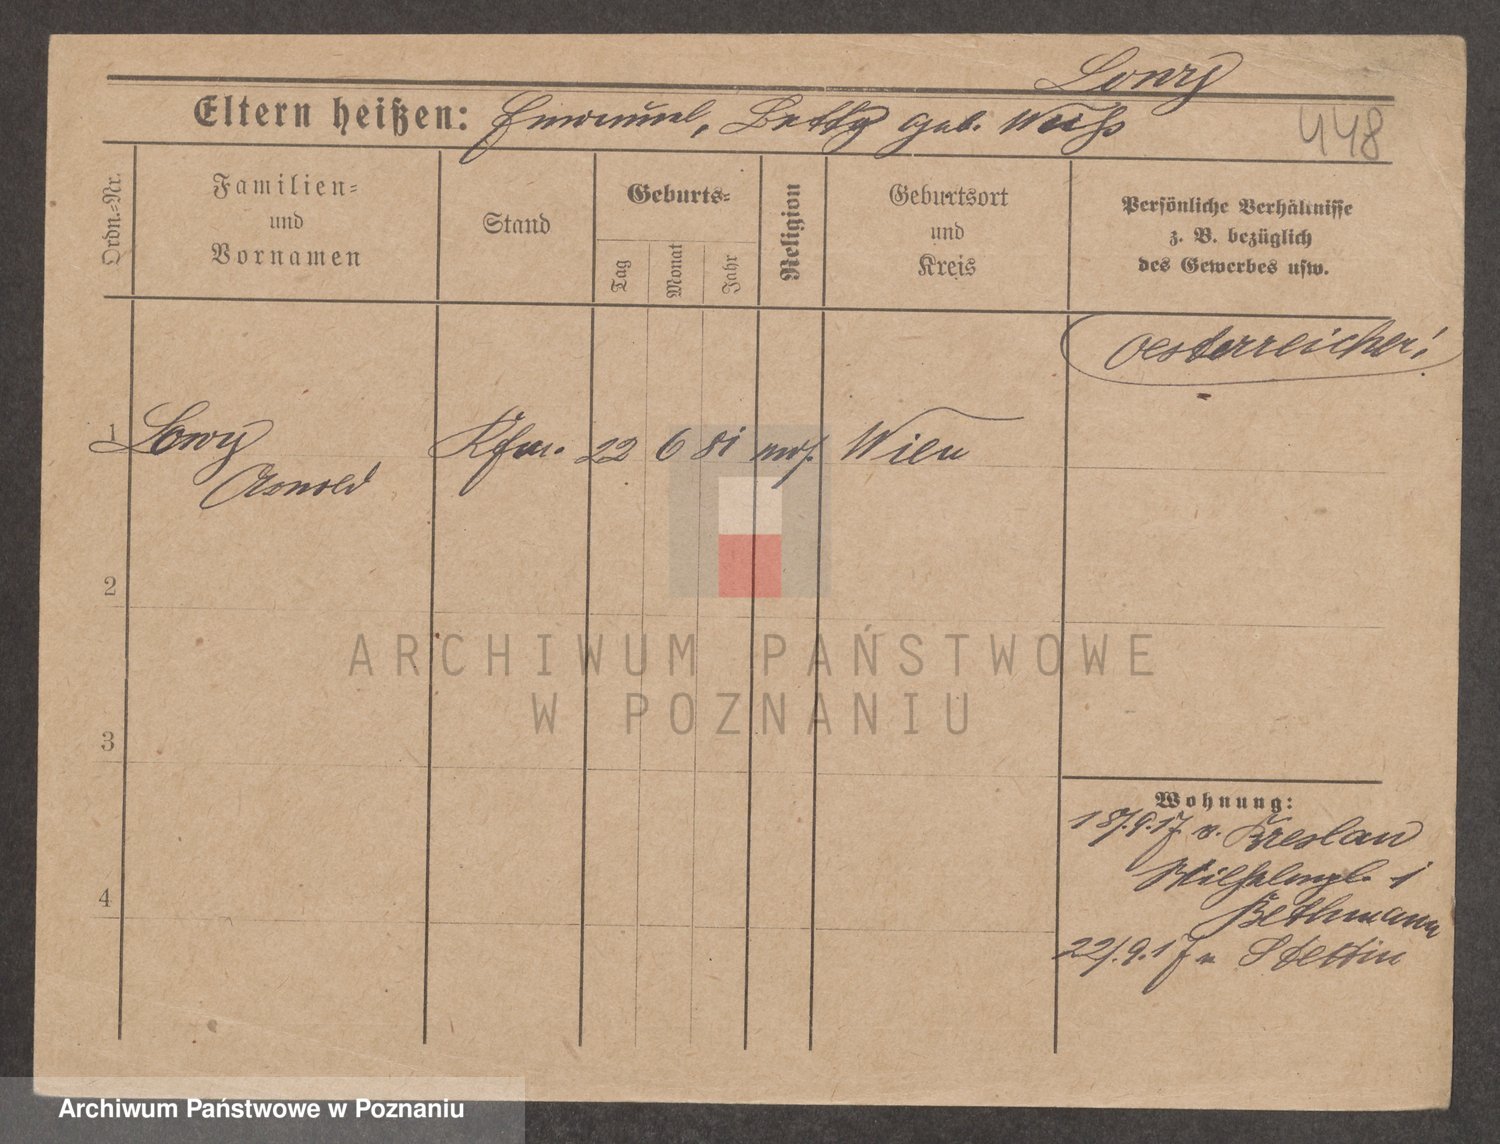 Lowy
Eltern heißen: Emanuel, Betty geb. Weiß
448
Ordn.-Nr.
Familien-
und
Vornamen
Stand
Geburts-
Tag
Monat
Jahr
Religion
Geburtsort
und
Kreis
Persönliche Verhältnisse
z. B. bezüglich
des Gewerbes usw.
Oesterreicher!
1 Lowy Kfm. 22 6 81 mos. Wien
Arnold
2
3
4
Wohnung:
18/.9.17 v. Breslau
Wilhelmpl. 1
Bethmann
22/.9.17 n Stettin
ARCHIWUM PAŃSTWOWE
W POZNANIU
Archiwum Państwowe w Poznaniu